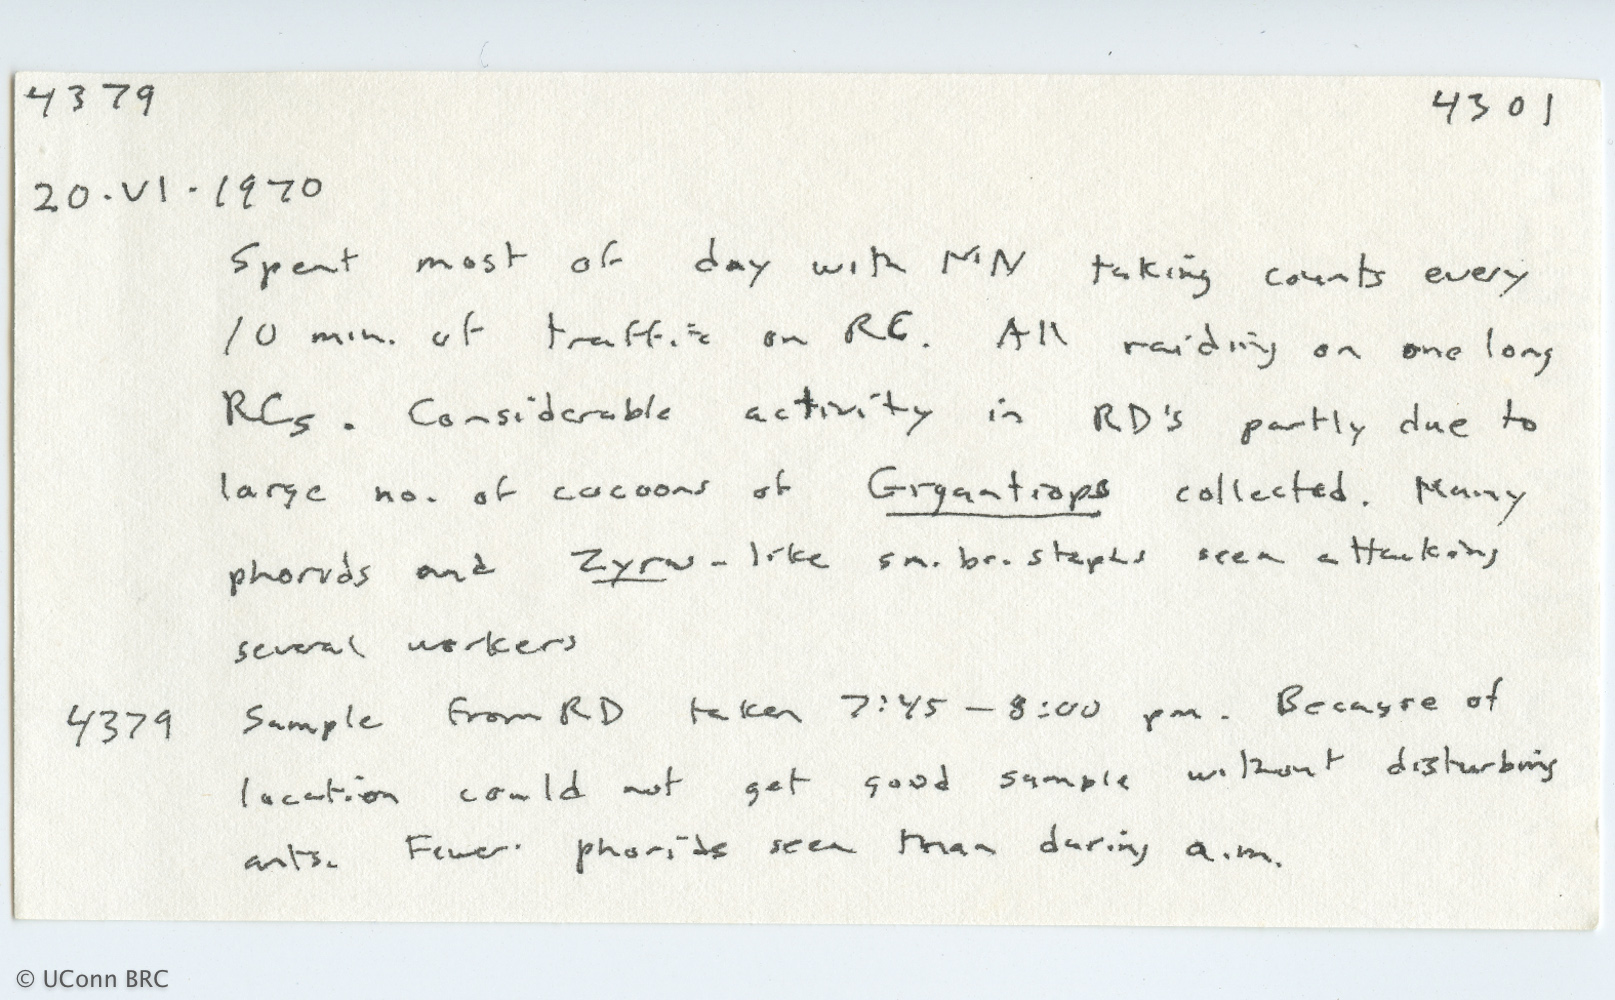 4379 4301
20.VI.1970
Spent most of day with NN taking counts every
10 min. of traffic on RC. All raiding on one long
RCs. Considerable activity in RD's partly due to
large no. of cocoons of Gigantiops collected. Many
phorids and Zyras-like sm. br. staphs seen attacking
several workers
4379 Sample from RD taken 7:45 - 8:00 pm. Because of
location could not get good sample without disturbing
ants. Fewer phorids seen than during a.m.
© UConn BRC